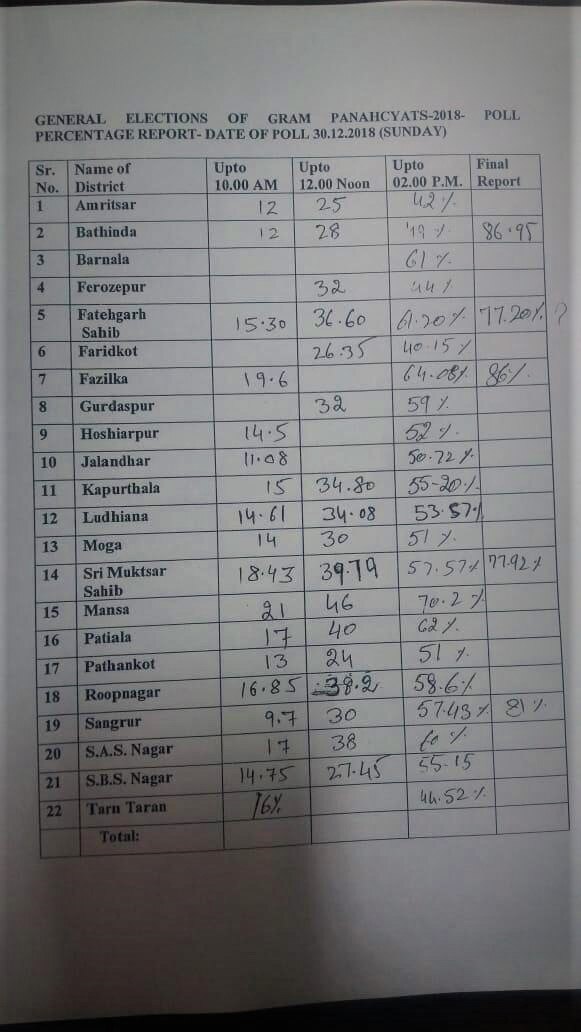 GENERAL ELECTIONS OF GRAM PANAHCYATS-2018- POLL
PERCENTAGE REPORT- DATE OF POLL 30.12.2018 (SUNDAY)
Sr. No. Name of District Upto 10.00 AM Upto 12.00 Noon Upto 02.00 P.M. Final Report
1 Amritsar 12 25 42%
2 Bathinda 12 28 86.95
3 Barnala 61%
4 Ferozepur 32 44%
5 Fatehgarh Sahib 15.30 36.60 61.20% 77.20% ?
6 Faridkot 26.35 40.15%
7 Fazilka 19.6 64.08% 86%
8 Gurdaspur 32 59%
9 Hoshiarpur 14.5 52%
10 Jalandhar 11.08 50.72%
11 Kapurthala 15 34.80 55-20%
12 Ludhiana 14.61 34.08 53.57%
13 Moga 14 30 51%
14 Sri Muktsar Sahib 18.43 39.79 57.57% 77.92%
15 Mansa 21 46 70.2%
16 Patiala 17 40 62%
17 Pathankot 13 24 51%
18 Roopnagar 16.85 38.2 58.6%
19 Sangrur 9.7 30 57.43% 81%
20 S.A.S. Nagar 17 38 60%
21 S.B.S. Nagar 14.75 27.45 55.15
22 Tarn Taran 16% 44.52%
Total: